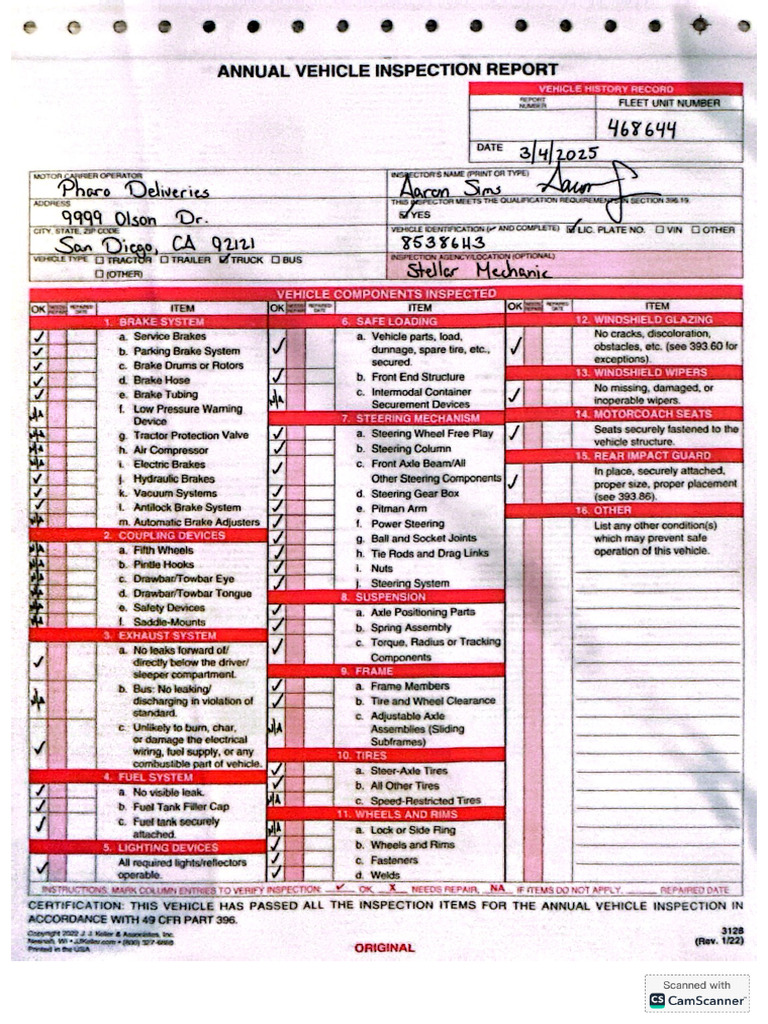 ANNUAL VEHICLE INSPECTION REPORT
VEHICLE HISTORY RECORD
REPORT NUMBER
FLEET UNIT NUMBER
468644
DATE 3/4/2025
MOTOR CARRIER OPERATOR
Pharo Deliveries
ADDRESS
9999 Olson Dr.
CITY, STATE, ZIP CODE
San Diego, CA 92121
VEHICLE TYPE ☐ TRACTOR ☐ TRAILER ☑ TRUCK ☐ BUS
☐ (OTHER)
INSPECTOR'S NAME (PRINT OR TYPE)
Aaron Sims
THIS INSPECTOR MEETS THE QUALIFICATION REQUIREMENTS IN SECTION 396.19.
☑ YES
VEHICLE IDENTIFICATION (✓ AND COMPLETE) ☑ LIC. PLATE NO. ☐ VIN ☐ OTHER
INSPECTION AGENCY/LOCATION (OPTIONAL)
Stellar Mechanic
VEHICLE COMPONENTS INSPECTED
OK NEEDS REPAIR REPAIRED DATE ITEM
1. BRAKE SYSTEM
✓ a. Service Brakes
✓ b. Parking Brake System
✓ c. Brake Drums or Rotors
✓ d. Brake Hose
✓ e. Brake Tubing
N/A f. Low Pressure Warning
Device
N/A g. Tractor Protection Valve
N/A h. Air Compressor
N/A i. Electric Brakes
✓ j. Hydraulic Brakes
✓ k. Vacuum Systems
✓ l. Antilock Brake System
N/A m. Automatic Brake Adjusters
2. COUPLING DEVICES
N/A a. Fifth Wheels
N/A b. Pintle Hooks
N/A c. Drawbar/Towbar Eye
N/A d. Drawbar/Towbar Tongue
N/A e. Safety Devices
N/A f. Saddle-Mounts
3. EXHAUST SYSTEM
✓ a. No leaks forward of/
directly below the driver/
sleeper compartment.
N/A b. Bus: No leaking/
discharging in violation of
standard.
✓ c. Unlikely to burn, char,
or damage the electrical
wiring, fuel supply, or any
combustible part of vehicle.
4. FUEL SYSTEM
✓ a. No visible leak.
✓ b. Fuel Tank Filler Cap
✓ c. Fuel tank securely
attached.
5. LIGHTING DEVICES
✓ All required lights/reflectors
operable.
OK NEEDS REPAIR REPAIRED DATE ITEM
6. SAFE LOADING
✓ a. Vehicle parts, load,
dunnage, spare tire, etc.,
secured.
✓ b. Front End Structure
N/A c. Intermodal Container
Securement Devices
7. STEERING MECHANISM
✓ a. Steering Wheel Free Play
✓ b. Steering Column
✓ c. Front Axle Beam/All
Other Steering Components
✓ d. Steering Gear Box
✓ e. Pitman Arm
✓ f. Power Steering
✓ g. Ball and Socket Joints
✓ h. Tie Rods and Drag Links
✓ i. Nuts
✓ j. Steering System
8. SUSPENSION
✓ a. Axle Positioning Parts
✓ b. Spring Assembly
✓ c. Torque, Radius or Tracking
Components
9. FRAME
✓ a. Frame Members
✓ b. Tire and Wheel Clearance
N/A c. Adjustable Axle
Assemblies (Sliding
Subframes)
10. TIRES
✓ a. Steer-Axle Tires
✓ b. All Other Tires
N/A c. Speed-Restricted Tires
11. WHEELS AND RIMS
N/A a. Lock or Side Ring
✓ b. Wheels and Rims
✓ c. Fasteners
✓ d. Welds
OK NEEDS REPAIR REPAIRED DATE ITEM
12. WINDSHIELD GLAZING
✓ No cracks, discoloration,
obstacles, etc. (see 393.60 for
exceptions).
13. WINDSHIELD WIPERS
✓ No missing, damaged, or
inoperable wipers.
14. MOTORCOACH SEATS
✓ Seats securely fastened to the
vehicle structure.
15. REAR IMPACT GUARD
✓ In place, securely attached,
proper size, proper placement
(see 393.86).
16. OTHER
List any other condition(s)
which may prevent safe
operation of this vehicle.
INSTRUCTIONS: MARK COLUMN ENTRIES TO VERIFY INSPECTION: ✓ OK, X NEEDS REPAIR, NA IF ITEMS DO NOT APPLY, REPAIRED DATE
CERTIFICATION: THIS VEHICLE HAS PASSED ALL THE INSPECTION ITEMS FOR THE ANNUAL VEHICLE INSPECTION IN
ACCORDANCE WITH 49 CFR PART 396.
Copyright 2022 J. J. Keller & Associates, Inc.
Neenah, WI • JJKeller.com • (800) 327-6868
Printed in the USA
ORIGINAL
3128
(Rev. 1/22)
Scanned with
CS CamScanner